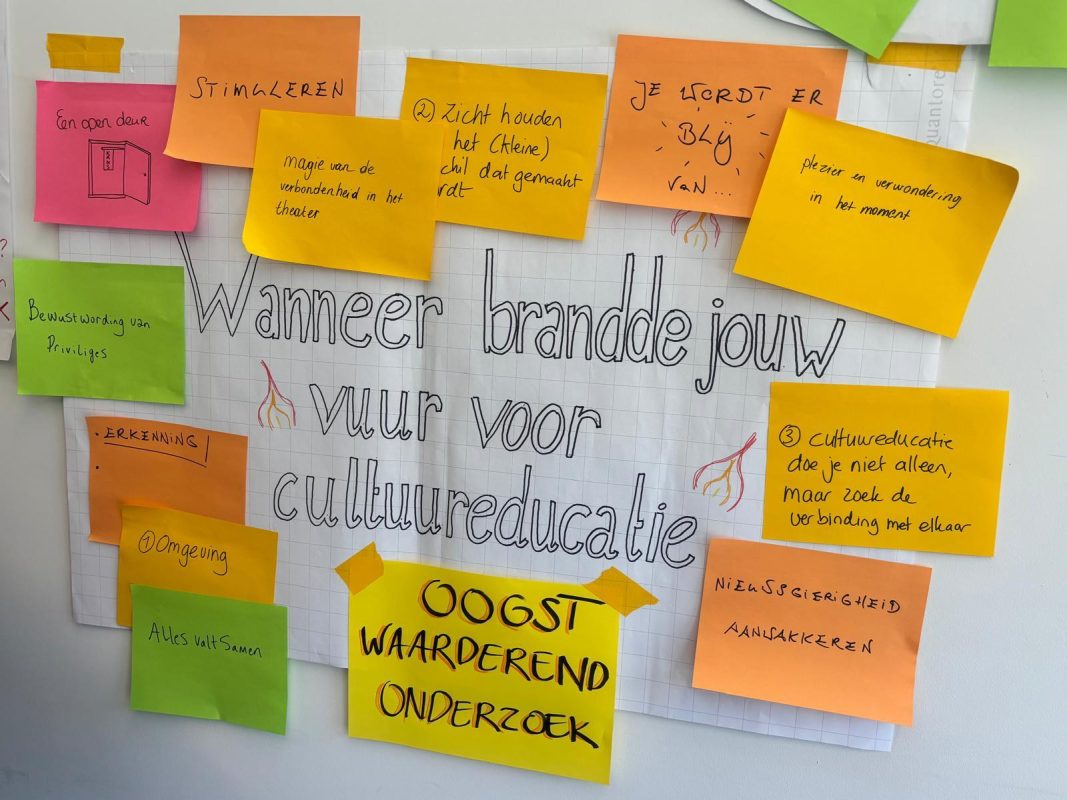 Een open deur
STIMULEREN
magie van de
verbondenheid in het
theater
② Zicht houden
het (kleine)
chil dat gemaakt
rdt
JE WORDT ER
BLIJ
VAN...
plezier en verwondering
in het moment
quantore
Bewustwording van
Priviliges
Wanneer brandde jouw
vuur voor
cultuureducatie
• ERKENNING!
•
① Omgeving
Alles valt Samen
③ cultuureducatie
doe je niet alleen,
maar zoek de
verbinding met elkaar
NIEUSSGIERIGHEID
AANWAKKEREN
OOGST
WAARDEREND
ONDERZOEK